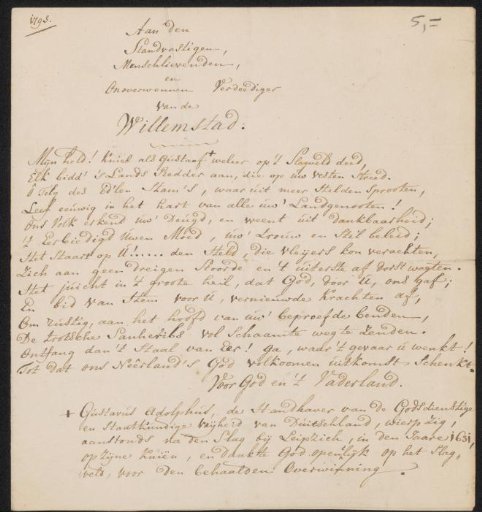 1793.
5,=
Aan den
Standvastigen,
Menschlievenden,
en
Onverwonnen Verdediger
van de
Willemstad.
Mijn held! kniel als Gustaaf + weleer op 't Slagveld deed,
Elk bidd' 's Lands Redder aan, die op uw vesten streed.
ô Telg des Ed'len Stam's, waar uit meer Helden sprooten,
Leef eeuwig in het hart van alle uw' Landgenooten!
Ons Volk erkend uw' Deugd, en weent uit dankbaarheid;
't Eerbiedigt Uwen Moed, uw' Trouw en beleid;
Het Staart op U! .... den Held, die vleijers kon verachten,
Zich aan geen dreigen stoorde en 't uiterste af dorst wagten.
Het juicht in 't groote heil, dat God, door U, ons gaf;
En bid van Hem voor U, vernieuwde krachten af,
Om rustig, aan het hoofd van uw' beproefde benden,
De trotsche Sanheribs vol Schaamte weg te zenden.
Ontfang dan 't Staal van Eer! Ga, waar 't gevaar U wenkt!
Tot dat ons Neêrland's God volkoomen uitkomst Schenkt.
Voor God en 't Vaderland.
+ Gustavus Adolphus, de Handhaver van de Godsdienstige
en Staatkundige vrijheid van Duitschland, wierp zig,
aanstonds na den Slag bij Leipzich, in den Jaare 1631,
op zijne kniën, en dankte God openlijk op het Slag,
veld, voor den behaalden Overwinning.